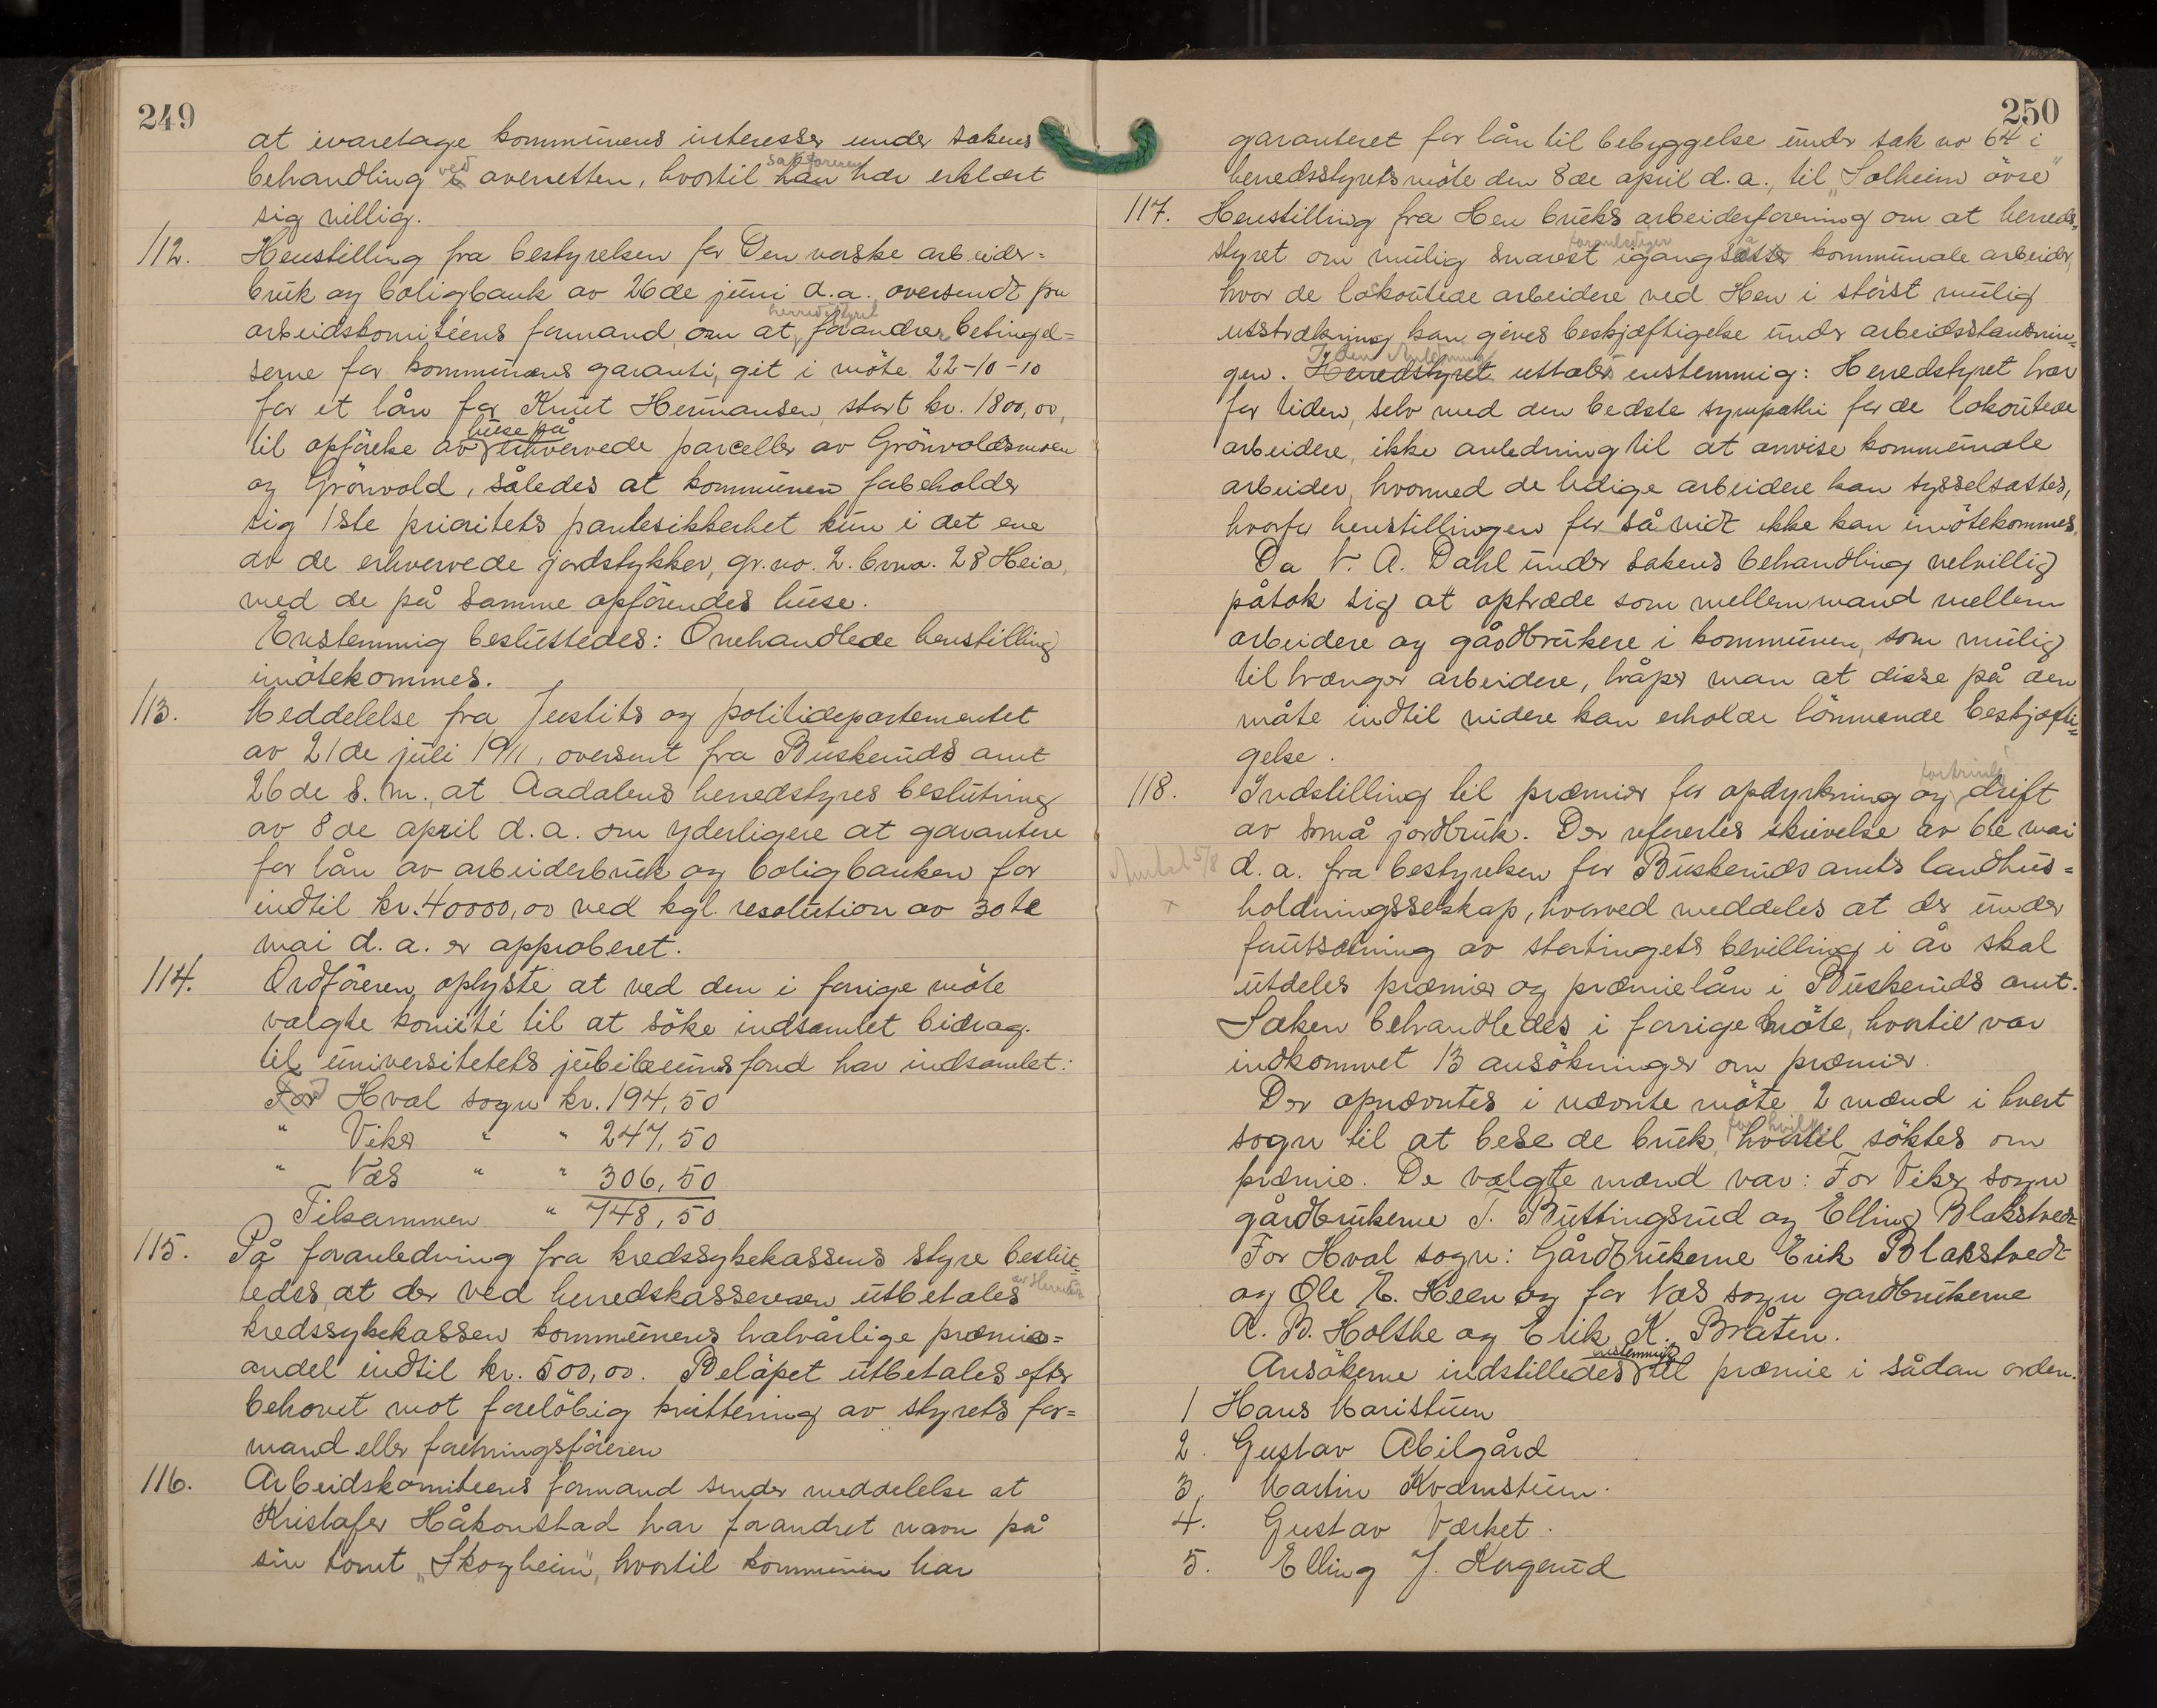 249
at ivaretage kommunens interesser under sakens
behandling ved overretten, hvortil sakføreren har erklært
sig villig.
112. Henstilling fra bestyrelsen for Den norske arbeider=
bruk og boligbank av 26de juni d.a. oversendt fra
arbeidskomitéens formand, om at herredsstyret forandrer betingel=
serne for kommunens garanti, git i møte 22-10-10
for et lån for Knut Hermansen, stort kr. 1800,00,
til opførelse av huse på erhvervede parceller av Grönvoldsmoen
og Grönvold, således at kommunen forbeholder
sig 1ste prioritets pantesikkerhet kun i det ene
av de erhvervede jordstykker, gr.no. 2. brno. 28 Heia,
med de på samme opførendes huse.
Enstemmig besluttedes: Omhandlede henstilling
imötekommes.
113. Meddelelse fra Justits og politidepartementet
av 21de juli 1911, oversent fra Buskeruds amt
26de s.m., at Aadalens herredstyres beslutning
av 8de april d.a. om yderligere at garantere
for lån av arbeiderbruk og boligbanken for
indtil kr. 40000,00 ved kgl. resolution av 30te
mai d.a. er approberet.
114. Ordföreren oplyste at ved den i forrige möte
valgte komité til at söke indsamlet bidrag
til universitetets jubilæumsfond har indsamlet:
For Hval sogn kr. 194,50
" Viker " " 247,50
" Næs " " 306,50
Tilsammen " 748,50
115. På foranledning fra kredssykekassens styre beslut=
tedes at der ved herredskassereren utbetales
kredssykekassen kommunens halvårlige præmie=
andel indtil kr. 500,00. Belöpet utbetales efter
behovet mot foreløbig kvittering av styrets for=
mand eller forretningsföreren
116. Arbeidskomiteens formand sender meddelelse at
Kristofer Håkonstad har forandret navn på
sin tomt „Skogheim", hvortil kommunen har
250
garanteret for lån til bebyggelse under sak no 64 i
herredsstyrets möte den 8de april d.a., til „Solheim övre"
117. Henstilling fra Hen bruks arbeiderforening om at herreds=
styret om mulig snarest foranlediger igangsat kommunale arbeider,
hvor de lokoutede arbeidere ved Hen i störst mulig
utstrækning kan gives beskjæftigelse under arbeidsstansnin=
gen. I den Anledning Herredstyret uttales enstemmig: Herredstyret har
for tiden, selv med den bedste sympathi for de lokoutede
arbeidere, ikke anledning til at anvise kommunale
arbeider, hvormed de ledige arbeidere kan sysselsættes,
hvorfor henstillingen for såvidt ikke kan imötekommes.
Da N. A. Dahl under sakens behandling velvillig
påtok sig at optræde som mellemmand mellem
arbeidere og gårdbrukere i kommunen, som mulig
tiltrænger arbeidere, håper man at disse på den
måte indtil videre kan erholde lönnende beskjæfti=
gelse.
118. Indstilling til præmier for opdyrkning og fortrinlig drift
av små jordbruk. Der refertes skrivelse av 6te mai
d.a. fra bestyrelsen for Buskeruds amts landhus=
holdningsselskap, hvorved meddeles at der under
forutsætning av stortingets bevilling i år skal
utdeles præmier og præmielån i Buskeruds amt.
Saken behandledes i forrige möte, hvortil var
indkommet 13 ansökninger om præmier.
Der opnævntes i nævnte möte 2 mænd i hvert
sogn til at bese de bruk, for hvilke hvortil söktes om
præmie. De valgte mænd var: For Viker sogn
gårdbrukerne T. Buttingsrud og Elling Blakstvedt
For Hval sogn: Gårdbrukerne Erik Blakstvedt
og Ole E. Heen og for Næs sogn gardbrukerne
A. B. Holthe og Erik K. Bråten.
Ansökerne indstilledes enstemmig til præmie i sådan orden.
1 Hans Maristuen
2. Gustav Abilgård
3. Martin Kvernstuen.
4. Gustav Værket.
5. Elling J.